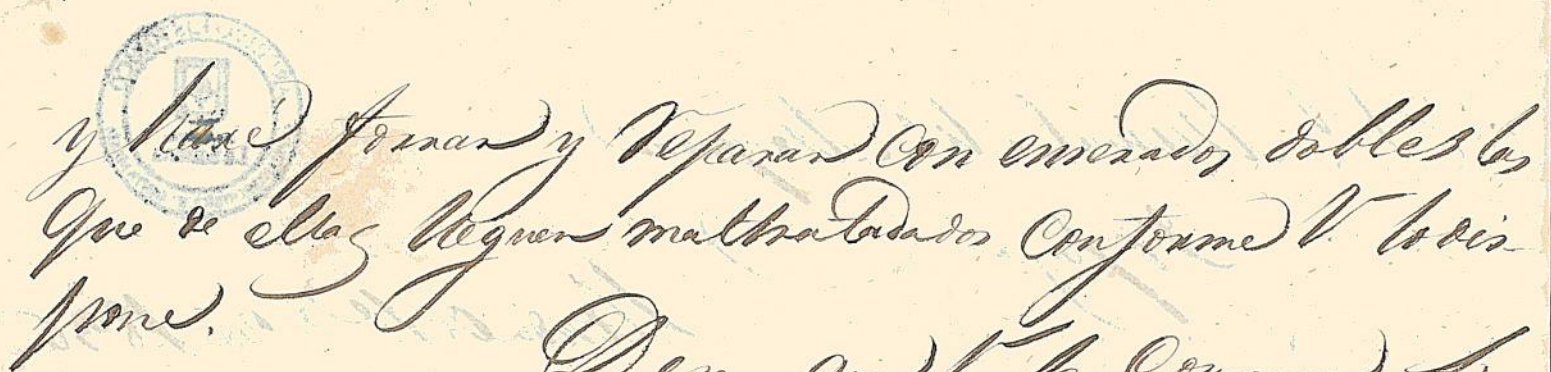 y haré forrar y reparar con enserados dobles los
que de ellas lleguen malthratadados conforme V. lo dis-
pone.